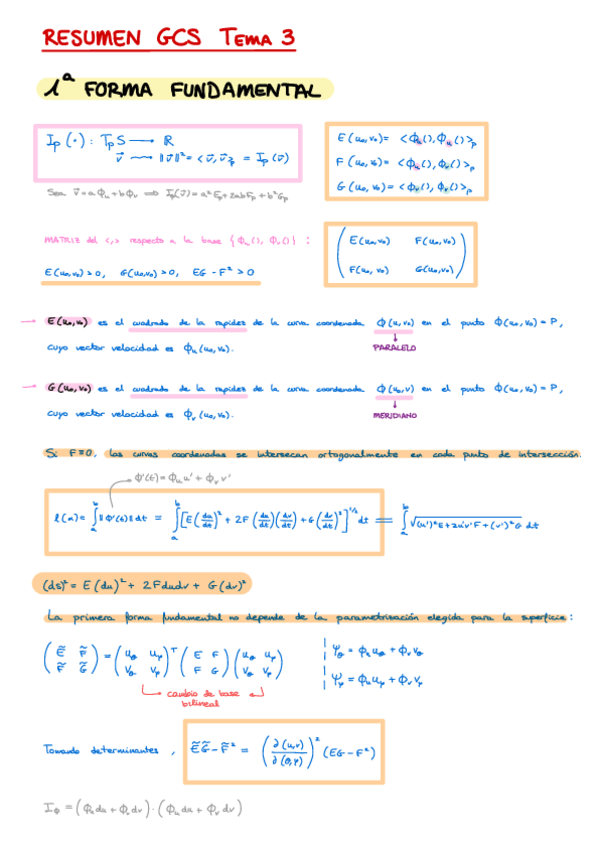 RESUMEN GCS TEMA 3
1ª FORMA FUNDAMENTAL
I_p(·): T_pS ⟶ ℝ
v⃗ ⟿ ‖v⃗‖² = <v⃗, v⃗>_p = I_p(v⃗)
E(u₀,v₀) = <ϕ_u(), ϕ_u()>_p
F(u₀,v₀) = <ϕ_u(), ϕ_v()>_p
G(u₀,v₀) = <ϕ_v(), ϕ_v()>_p
Sea v⃗ = aϕ_u + bϕ_v ⟹ I_p(v⃗) = a²E_p + 2abF_p + b²G_p
MATRIZ del <,> respecto a la base {ϕ_u(), ϕ_v()} :
E(u₀,v₀) F(u₀,v₀)
F(u₀,v₀) G(u₀,v₀)
E(u₀,v₀)>0, G(u₀,v₀)>0, EG-F²>0
→ E(u₀,v₀) es el cuadrado de la rapidez de la curva coordenada ϕ(u,v₀) en el punto ϕ(u₀,v₀) = P,
↓
PARALELO
cuyo vector velocidad es ϕ_u(u₀,v₀).
→ G(u₀,v₀) es el cuadrado de la rapidez de la curva coordenada ϕ(u₀,v) en el punto ϕ(u₀,v₀) = P,
↓
MERIDIANO
cuyo vector velocidad es ϕ_v(u₀,v₀).
Si F≡0, las curvas coordenadas se intersecan ortogonalmente en cada punto de intersección.
ϕ'(t) = ϕ_u u' + ϕ_v v'
l(α) = ∫_a^b ‖ϕ'(t)‖dt = ∫_a^b [E(du/dt)² + 2F(du/dt)(dv/dt) + G(dv/dt)²]^1/2 dt = ∫_a^b √((u')²E + 2u'v'F + (v')²G) dt
(ds)² = E(du)² + 2Fdudv + G(dv)²
La primera forma fundamental no depende de la parametrización elegida para la superficie:
(Ẽ F̃; F̃ G̃) = (u_θ u_φ; v_θ v_φ)^T (E F; F G) (u_θ u_φ; v_θ v_φ)
ψ_θ = ϕ_u u_θ + ϕ_v v_θ
ψ_φ = ϕ_u u_φ + ϕ_v v_φ
cambio de base
bilineal
Tomando determinantes, ẼG̃ - F̃² = (∂(u,v)/∂(θ,φ))² (EG-F²)
I_ϕ = (ϕ_u du + ϕ_v dv)·(ϕ_u du + ϕ_v dv)